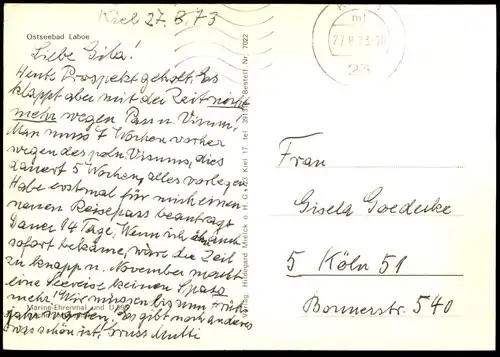 Kiel 27.8.73
Ostseebad Laboe
Liebe Gila!
Heute Prospekt geholt. Es
klappt aber mit der Zeit nicht
mehr wegen Pass u. Visum!
Man muss 7 Wochen vorher
wegen des poln. Visums, dies
dauert 5 Wochen, alles vorlegen.
Habe erstmal für mich einen
neuen Reisepass beantragt
Dauer 14 Tage. Wenn ich auch
sofort bekäme, wäre die Zeit
zu knapp u. November macht
eine Seereise keinen Spass
mehr! Wir müssen bis zum Früh
Marine-Ehrenmal und U
jahr warten. Es gibt noch anderes
was schön ist! Gruss Mutti
Verlag: Hildegard Mielck o. H. G., 23 Kiel 17, tel. 3913 Bestell Nr. 7022
27.8.73
23
Frau
Gisela Goedecke
5 Köln 51
Bonnerstr. 540